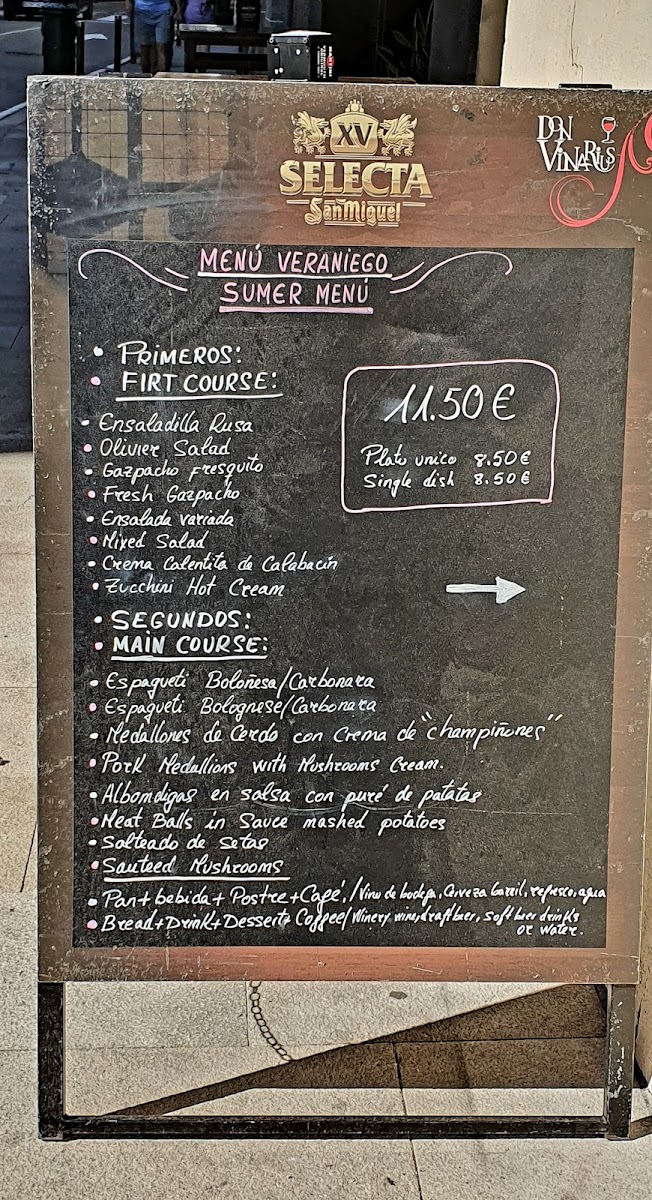 XV
SELECTA
SanMiguel
DON
VINARIUS
MENÚ VERANIEGO
SUMER MENÚ
• PRIMEROS:
• FIRT COURSE:
11.50 €
Plato unico 8.50 €
Single dish 8.50 €
• Ensaladilla Rusa
• Olivier Salad
• Gazpacho fresquito
• Fresh Gazpacho
• Ensalada variada
• Mixed Salad
• Crema Calentita de Calabacín
• Zucchini Hot Cream
• SEGUNDOS:
• MAIN COURSE:
• Espagueti Boloñesa/Carbonara
• Espagueti Bolognese/Carbonara
• Medallones de Cerdo con Crema de "champiñones"
• Pork Medallions with Mushrooms Cream.
• Albondigas en salsa con puré de patatas
• Meat Balls in Sauce mashed potatoes
• Salteado de Setas
• Sauteed Mushrooms
• Pan+bebida+Postre+Café./Vino de bodega, Cerveza barril, refresco, agua
• Bread+Drink+Desserts Coffee/Winery wine, draft beer, soft beer drinks
or water.